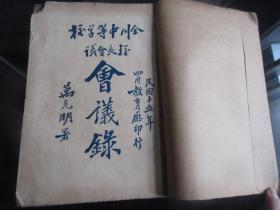 全川中等学校
校長會議
會議錄
民國十五年
四月教育廳印行
萬克明署